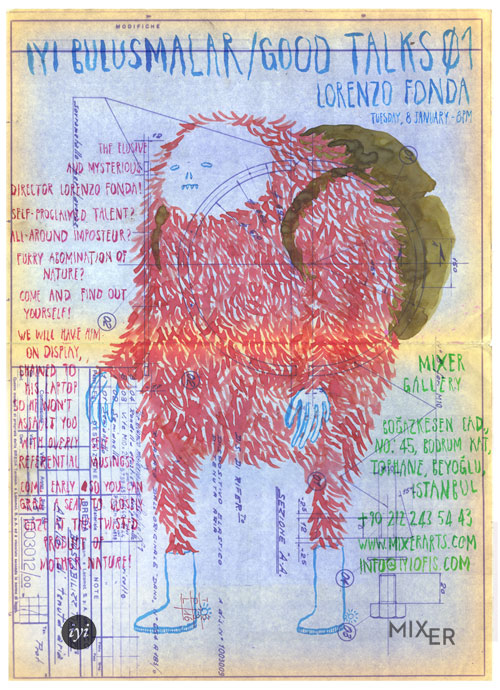 MODIFICHE
IYI BULUSMALAR/GOOD TALKS 01
LORENZO FONDA
TUESDAY, 8 JANUARY - 8PM
THE ELUSIVE
AND MYSTERIOUS
DIRECTOR LORENZO FONDA!
SELF-PROCLAIMED TALENT?
ALL-AROUND IMPOSTEUR?
FURRY ABOMINATION OF
NATURE?
COME AND FIND OUT
YOURSELF!
WE WILL HAVE HIM
ON DISPLAY,
CHAINED TO
HIS LAPTOP
SO HE WON'T
ASSAULT YOU
WITH
REFERENTIAL MUSINGS.
COME EARLY SO YOU CAN
GRAB A SEAT TO CLOSELY
GAZE AT THE TWISTED
PRODUCT OF
MOTHER-NATURE!
MIXER
GALLERY
BOĞAZKESEN CAD.,
NO. 45, BODRUM KAT,
TOPHANE, BEYOĞLU,
ISTANBUL
+90 212 243 54 43
WWW.MIXERARTS.COM
INFO@IYIOFIS.COM
SEZIONE A.A.
NOTE
003012/00
iyi
MIXER